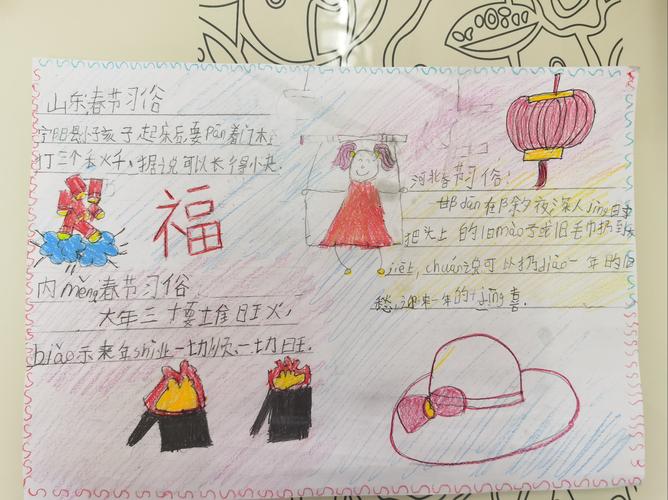 山东春节习俗
宁阳县小孩子起床后要pān着门
打三个秋千,据说可以长得快.
福
内měng春节习俗:
大年三十要堆旺火,
biǎo示来年shì业一切顺、一切旺.
河北春节习俗:
邯dān在除夕夜深人jìng时
把头上的旧mào子或旧毛巾扔到
jiē上,chuán说可以扔diào一年的
愁,迎来一年的喜.